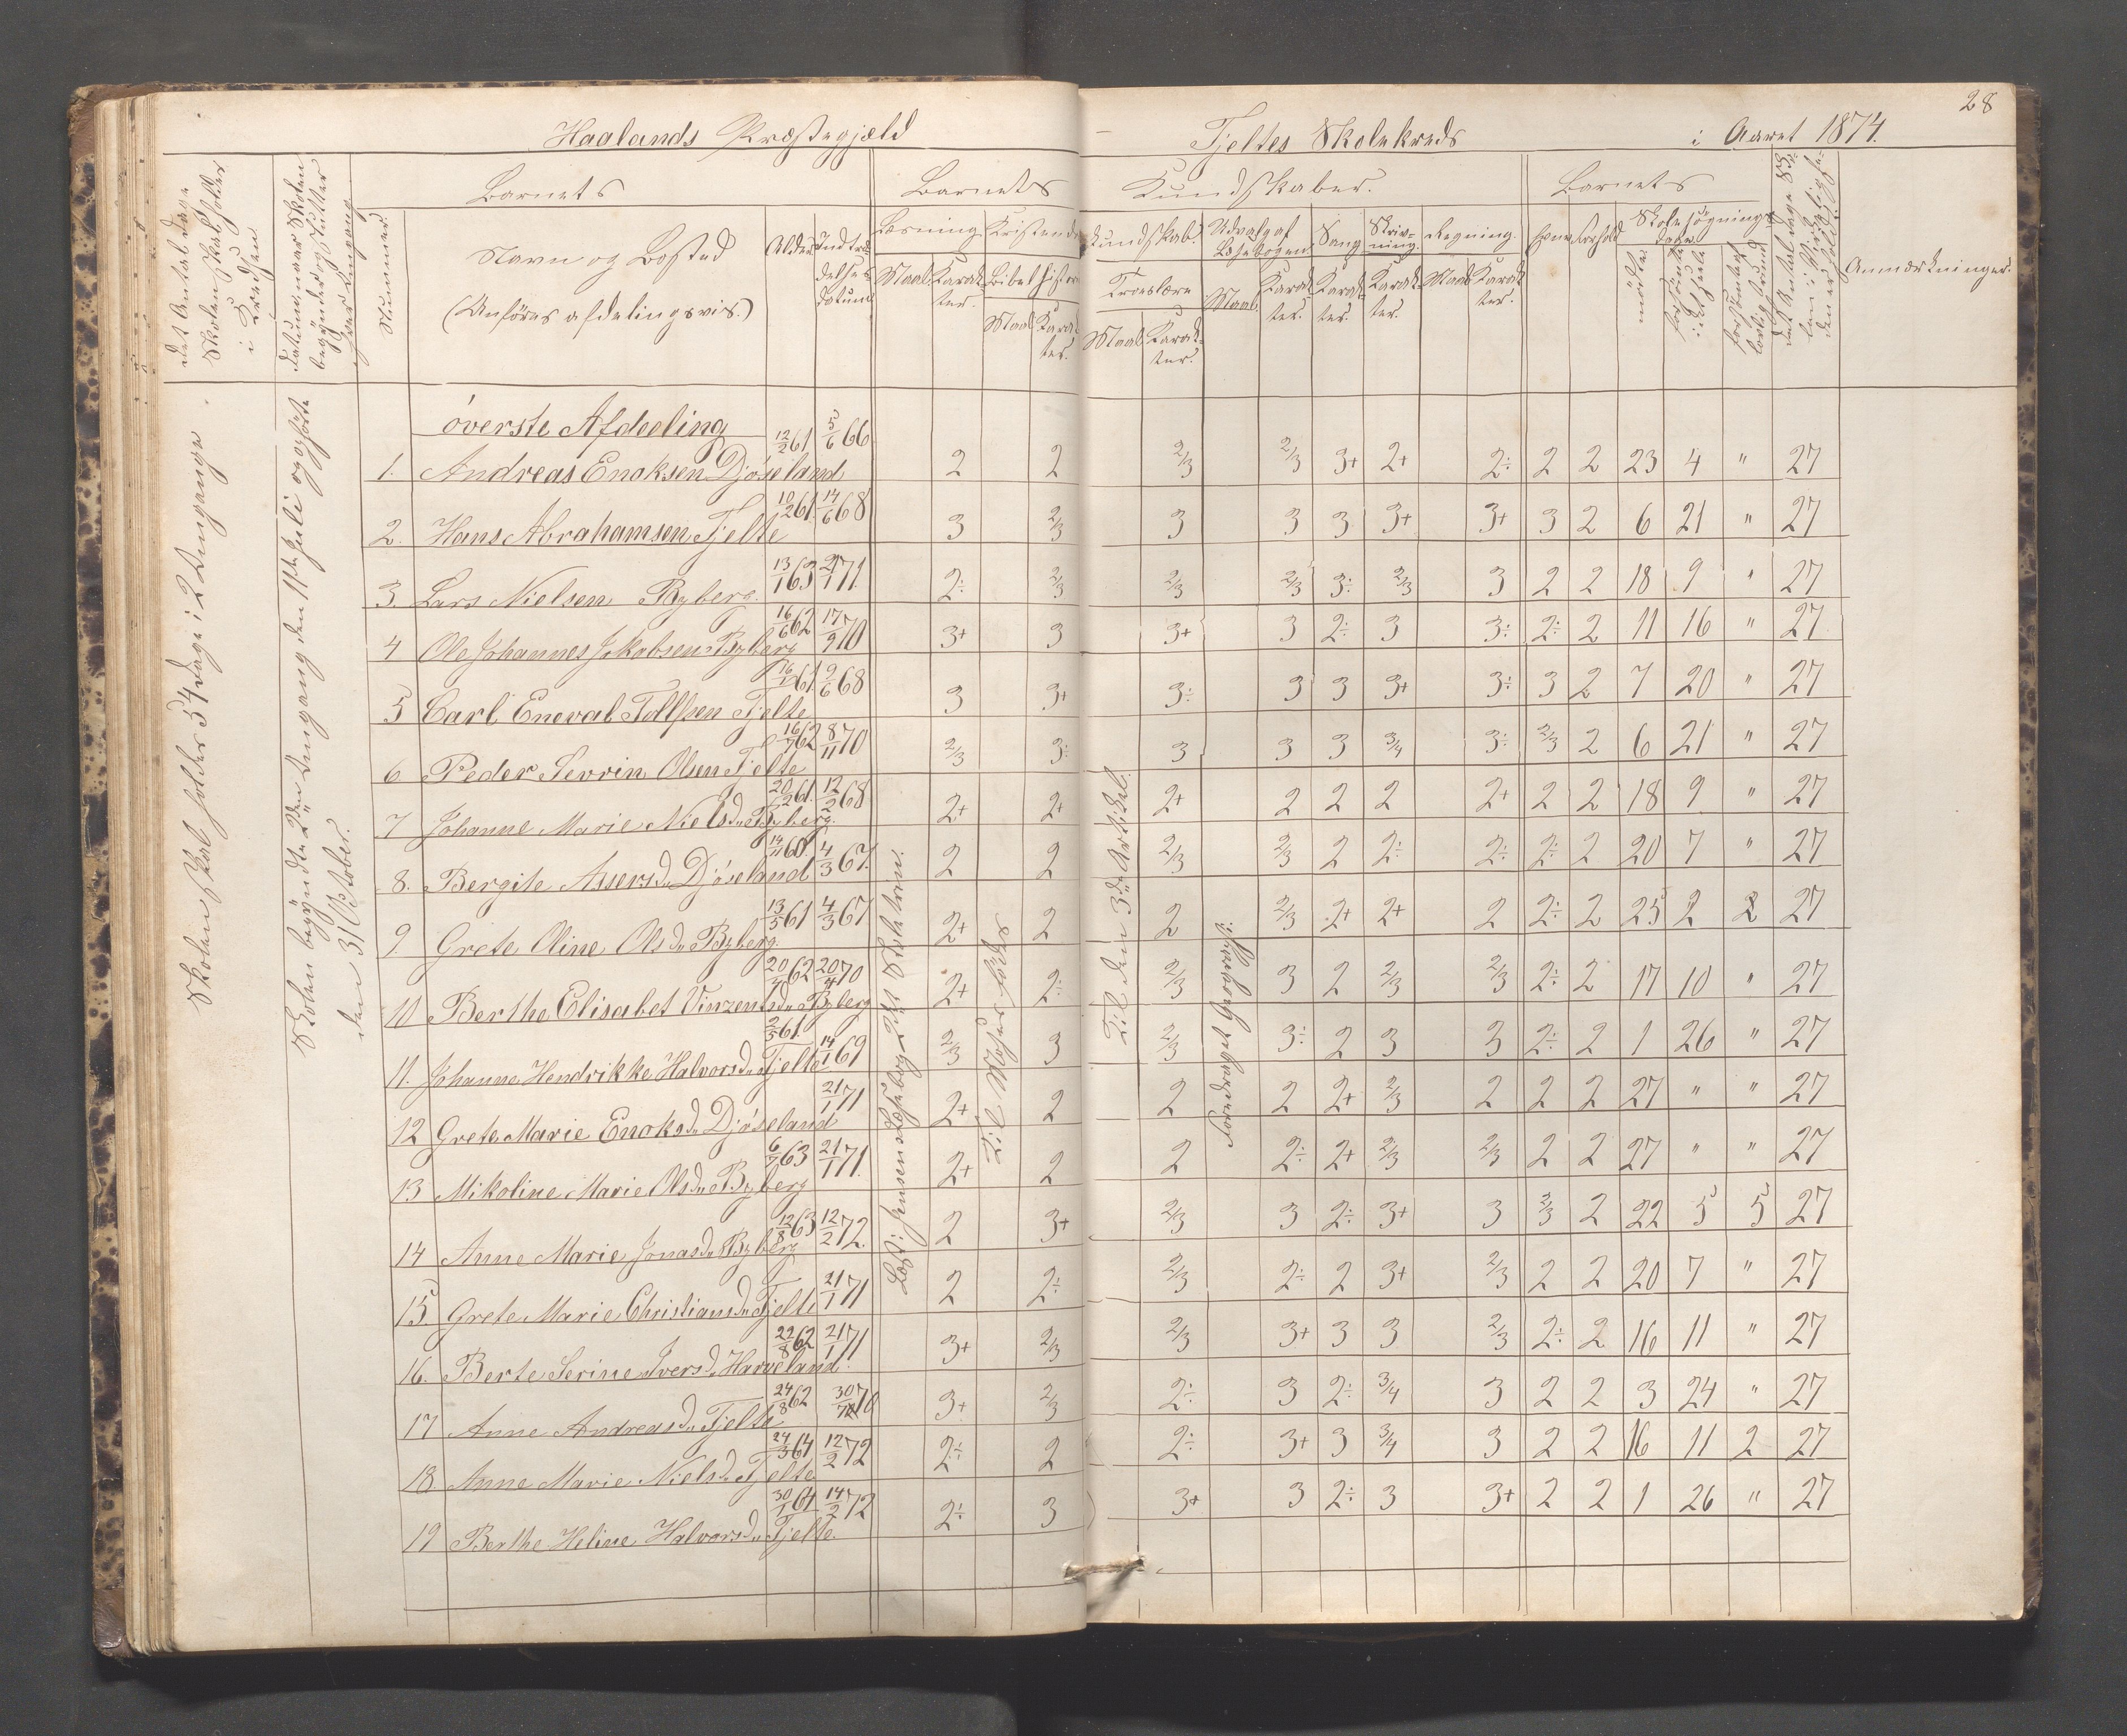 28
Haalands Præstegjæld
Tjeltes Skolekreds i Aaret 1874.
Det Antal Dage Skolen skal holdes i Kredsen
Datum naar Skolen begynder og slutter hver Omgang
Nummer
Barnets
Navn og Bosted
(Anføres afdelingsvis.)
Alder
Indtrædelses-datum
Barnets
Kundskaber.
Læsning.
Maal
Karakter.
Kristendomskundskab.
Bibelhistorie
Maal
Karakter.
Troeslære
Maal
Karakter.
Udvalg af Læsebogen
Maal.
Karakter.
Sang
Karakter.
Skrivning.
Karakter.
Regning.
Maal
Karakter.
Barnets
Evner
Forhold
Skolesøgningsdage
mødte
forsømte i det hele
forsømte af lovlig Grund
Det Antal Dage Skolen i Virkeligheden er holdt
Anmærkninger.
Skolen skal holdes 54 Dage i 2 Omgange.
Skolen begyndte 2den Omgang den 11te Juli og ophørte den 31 October.
øverste Afdeeling
1. Andreas Enoksen Djøseland 12/2 61 5/6 66 2 2 2/3 2/3 3+ 2+ 2÷ 2 2 23 4 " 27
2. Hans Abrahamsen Tjelte 10/12 61. 14/6 68 3 2/3 3 3 3 3+ 3+ 3 2 6 21 " 27
3. Lars Nielsen Byberg. 13/1 63 21/1 71. 2÷ 2/3 2/3 2/3 3÷ 2/3 3 2 2 18 9 " 27
4 Ole Johannes Jakobsen Byberg 16/6 62 17/9 70 3+ 3 3+ 3 2÷ 3 3÷ 2÷ 2 11 16 " 27
5 Carl Eneval Tollfsen Tjelte 16/1 61 9/6 68 3 3+ 3÷ 3 3 3+ 3÷ 3 2 7 20 " 27
6 Peder Sevrin Olsen Tjelte 16/7 62 8/11 70 2/3 3÷ 3 3 3 3/4 3÷ 2/3 2 6 21 " 27
7 Johanne Marie Nielsd. Byberg. 20/2 61. 12/2 68 2+ 2+ 2+ 2 2 2 2+ 2 2 18 9 " 27
8. Bergite Assersd. Djøseland 14/11 60. 4/3 67. 2 2 2/3 2/3 2 2÷ 2÷ 2÷ 2 20 7 " 27
9. Grete Oline Olsd. Byberg. 13/5 61 4/3 67 2+ 2 2 2/3 2+ 2+ 2 2÷ 2 25 2 2 27
10 Berthe Elisabet Vinzentsd. Byberg 20/7 62 20/4 70 2+ 2÷ 2/3 3 2 2/3 2/3 2÷ 2 17 10 " 27
11. Johanne Hendrikke Halvorsd. Tjelte 2/5 61. 14/1 69 2/3 3 2/3 3÷ 2 3 3 2÷ 2 1 26 " 27
12 Grete Marie Enoksd. Djøseland 21/1 71 2+ 2 2 2 2+ 2/3 2 2 2 27 " " 27
13 Mikoline Marie Olsd. Byberg 6/7 63 21/1 71. 2+ 2 2 2÷ 2+ 2/3 2/3 2 2 27 " " 27
14 Anne Marie Jonasd. Byberg 12/8 63 12/2 72. 2 3+ 2/3 3 2÷ 3+ 3 2/3 2 22 5 5 27
15. Grete Marie Christiansd. Tjelte 21/1 71 2 2÷ 2/3 2÷ 2 3+ 2/3 2 2 20 7 " 27
16. Berte Serine Iversd. Harveland. 22/8 62 21/1 71 3+ 2/3 2/3 3+ 3 3 2/3 2÷ 2 16 11 " 27
17 Anne Andreasd. Tjelte 24/8 62 30/7 70 3+ 2/3 2÷ 3 2÷ 3/4 3 2 2 3 24 " 27
18 Anne Marie Nielsd. Tjelte 24/3 64 12/2 72 2÷ 2 2÷ 3+ 3 3/4 3 2 2 16 11 2 27
19 Berthe Heline Halvorsd. Tjelte. 30/1 64 14/2 72 2÷ 3 3+ 3 2÷ 3 3+ 2 2 1 26 " 27
Læst i Jensens Læsebog
Til Moses
Til den 3die Artikel.
Foredraget Geografi.